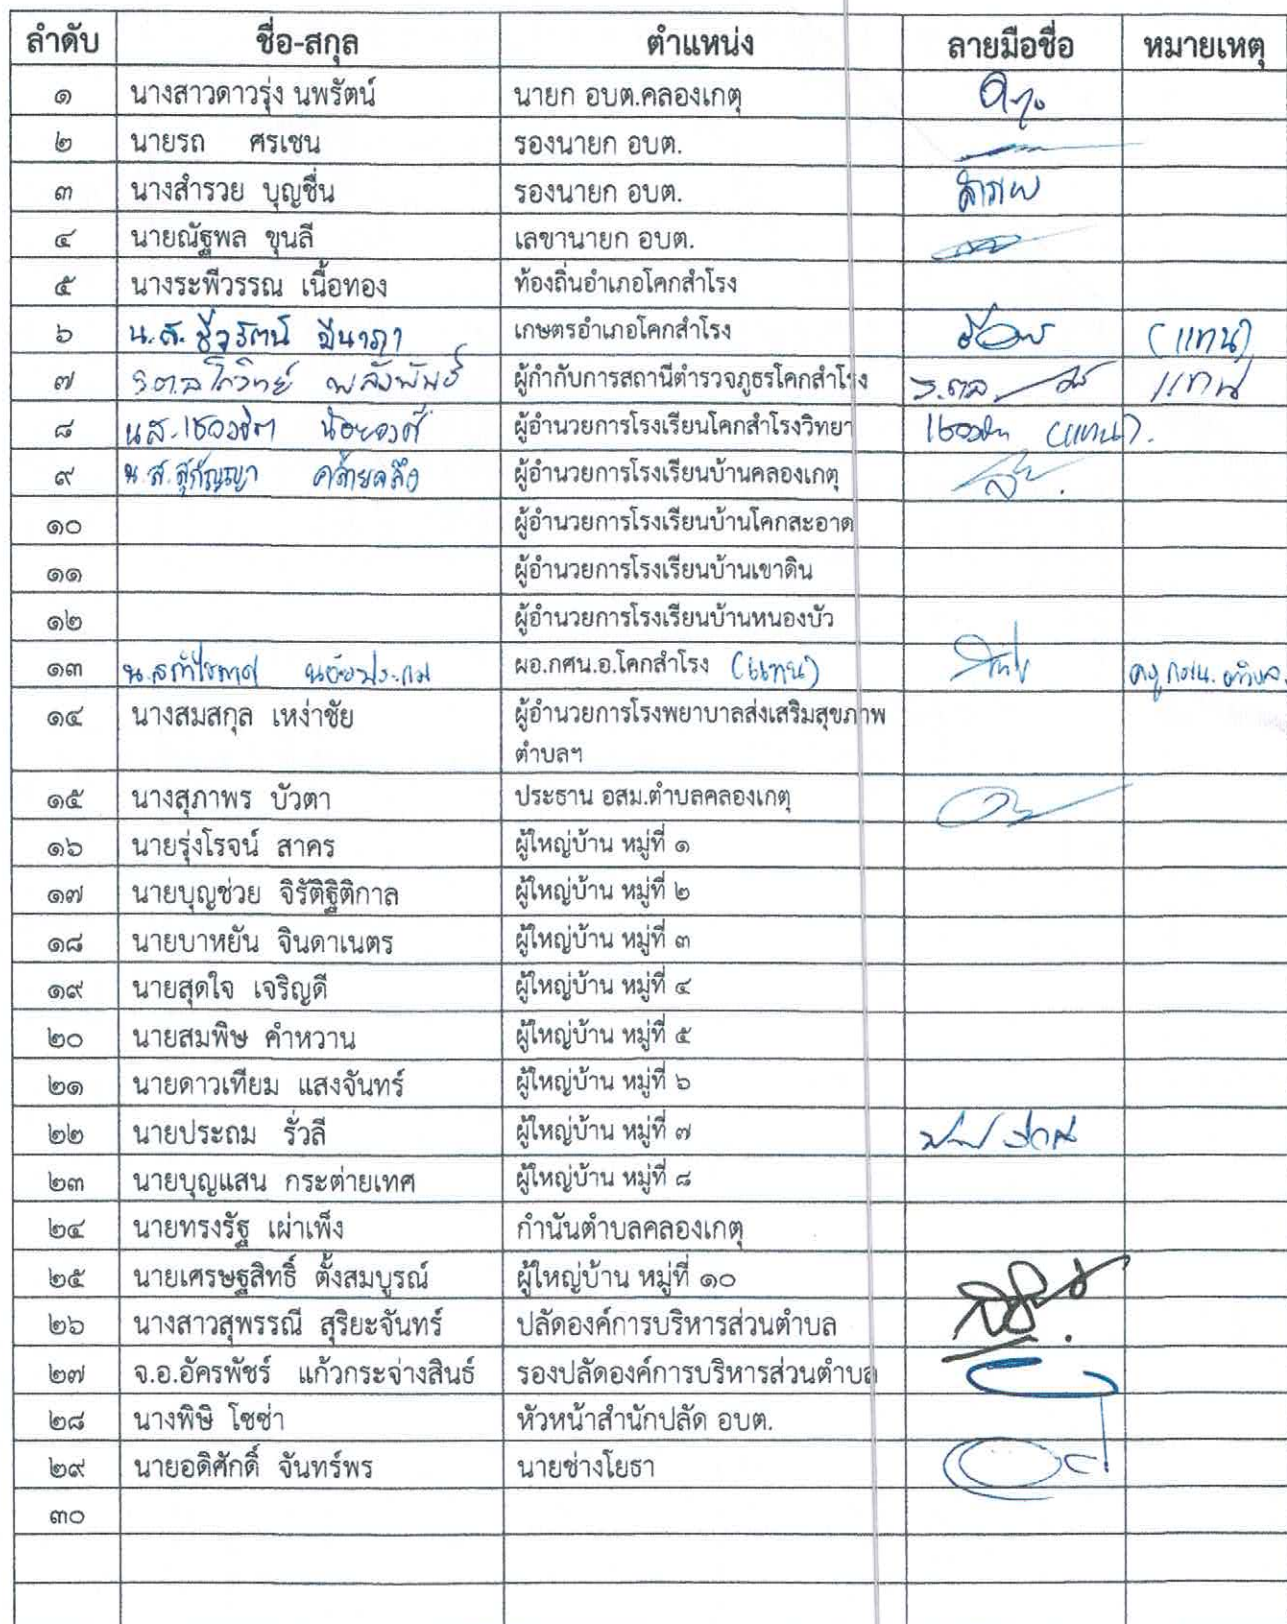 ลำดับ ชื่อ-สกุล ตำแหน่ง ลายมือชื่อ หมายเหตุ
๑ นางสาวดาวรุ่ง นพรัตน์ นายก อบต.คลองเกตุ
๒ นายรถ ศรเชน รองนายก อบต.
๓ นางสำรวย บุญชื่น รองนายก อบต. สำรวย
๔ นายณัฐพล ขุนลี เลขานายก อบต.
๕ นางระพีวรรณ เนื้อทอง ท้องถิ่นอำเภอโคกสำโรง
๖ น.ส. มีนาภา เกษตรอำเภอโคกสำโรง (แทน)
๗ ร.ต.ล โกวิทย์ พลังพันธ์ ผู้กำกับการสถานีตำรวจภูธรโคกสำโรง ร.ต.ล แทน
๘ น.ส. ผู้อำนวยการโรงเรียนโคกสำโรงวิทยา (แทน).
๙ น.ส.สุกัญญา คล้ายคลึง ผู้อำนวยการโรงเรียนบ้านคลองเกตุ
๑๐ ผู้อำนวยการโรงเรียนบ้านโคกสะอาด
๑๑ ผู้อำนวยการโรงเรียนบ้านเขาดิน
๑๒ ผู้อำนวยการโรงเรียนบ้านหนองบัว
๑๓ น.ส ผอ.กศน.อ.โคกสำโรง (แทน) ครู กศน. ตำบล.
๑๔ นางสมสกุล เหง่าชัย ผู้อำนวยการโรงพยาบาลส่งเสริมสุขภาพ
ตำบลฯ
๑๕ นางสุภาพร บัวตา ประธาน อสม.ตำบลคลองเกตุ
๑๖ นายรุ่งโรจน์ สาคร ผู้ใหญ่บ้าน หมู่ที่ ๑
๑๗ นายบุญช่วย จิรัติฐิติกาล ผู้ใหญ่บ้าน หมู่ที่ ๒
๑๘ นายบาหยัน จินดาเนตร ผู้ใหญ่บ้าน หมู่ที่ ๓
๑๙ นายสุดใจ เจริญดี ผู้ใหญ่บ้าน หมู่ที่ ๔
๒๐ นายสมพิษ คำหวาน ผู้ใหญ่บ้าน หมู่ที่ ๕
๒๑ นายดาวเทียม แสงจันทร์ ผู้ใหญ่บ้าน หมู่ที่ ๖
๒๒ นายประถม รั่วลี ผู้ใหญ่บ้าน หมู่ที่ ๗
๒๓ นายบุญแสน กระต่ายเทศ ผู้ใหญ่บ้าน หมู่ที่ ๘
๒๔ นายทรงรัฐ เผ่าเพ็ง กำนันตำบลคลองเกตุ
๒๕ นายเศรษฐสิทธิ์ ตั้งสมบูรณ์ ผู้ใหญ่บ้าน หมู่ที่ ๑๐
๒๖ นางสาวสุพรรณี สุริยะจันทร์ ปลัดองค์การบริหารส่วนตำบล
๒๗ จ.อ.อัครพัชร์ แก้วกระจ่างสินธ์ รองปลัดองค์การบริหารส่วนตำบล
๒๘ นางพิษิ โชซ่า หัวหน้าสำนักปลัด อบต.
๒๙ นายอดิศักดิ์ จันทร์พร นายช่างโยธา
๓๐